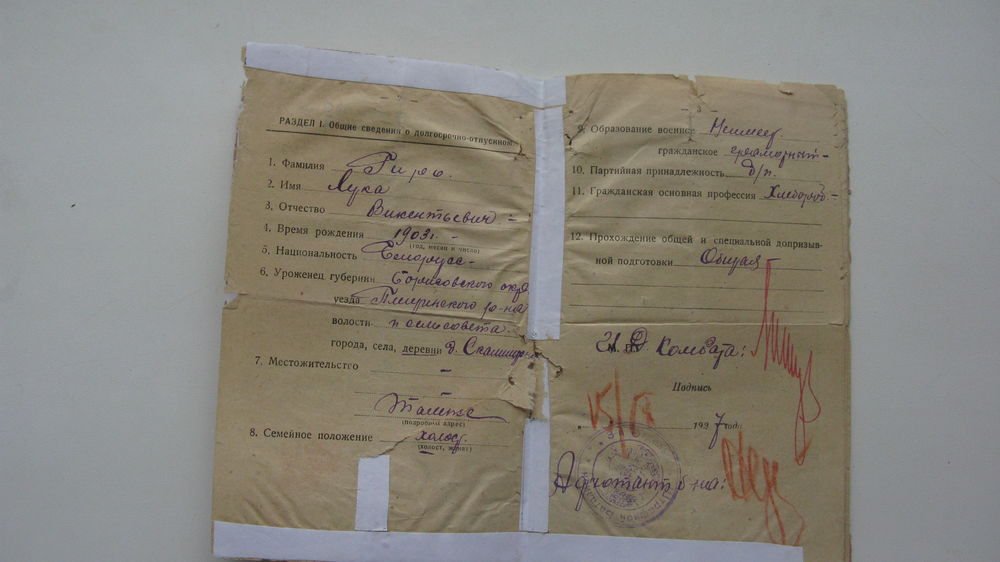 РАЗДЕЛ I. Общие сведения о долгосрочно-отпускном.
1. Фамилия
2. Имя Лука
3. Отчество Викентьевич -
4. Время рождения 1903 г. -
(год, месяц и число)
5. Национальность Белорусс -
6. Уроженец губернии Борисовского окр
уезда Плещинского р-на
волости п сельсовета.
города, села, деревни д.
7. Местожительство -
Там же
(подробный адрес)
8. Семейное положение холост.
(холост, женат)
— 3 —
9. Образование военное Неимеет.
гражданское грамотный -
10. Партийная принадлежность б/п.
11. Гражданская основная профессия Хлебороб -
12. Прохождение общей и специальной допризыв-
ной подготовки Общая -
М. П. Комбата:
Подпись
15/IX 1927 года
Адъютант б-на: